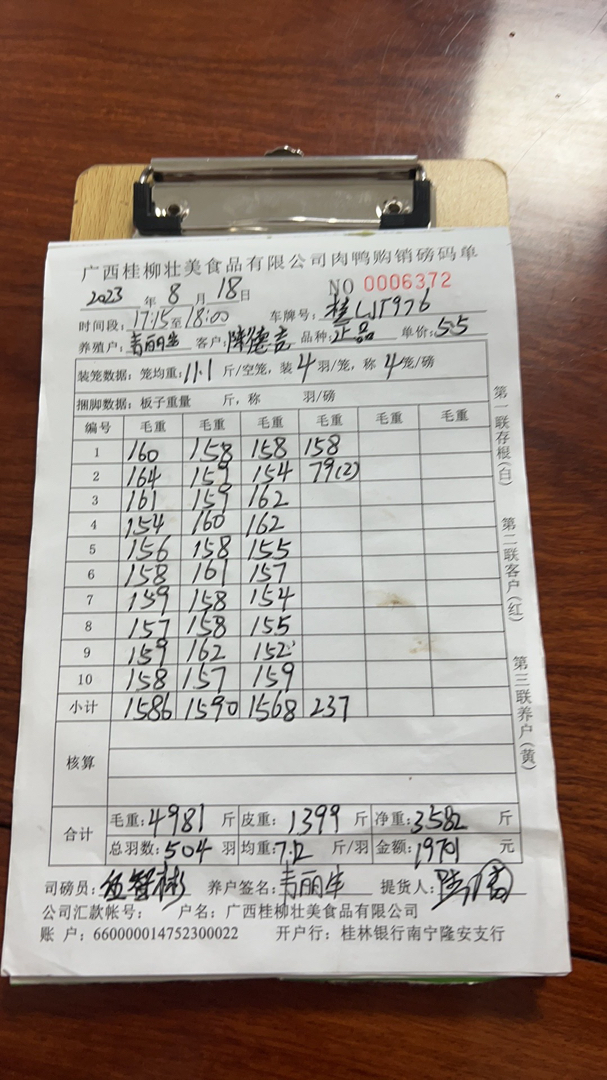 广西桂柳壮美食品有限公司肉鸭购销磅码单
2023 年 8 月 18 日 NO 0006372
时间段: 17:15 至 18:00 车牌号: 桂
养殖户: 青丽生 客户: 陆德吉 品种: 正品 单价: 5.5
装笼数据: 笼均重: 11.1 斤/空笼, 装 4 羽/笼, 称 4 笼/磅
捆脚数据: 板子重量 斤, 称 羽/磅
编号 毛重 毛重 毛重 毛重 毛重 毛重
1 160 158 158 158
2 164 159 154 79(2)
3 161 159 162
4 154 160 162
5 156 158 155
6 158 161 157
7 159 158 154
8 157 158 155
9 159 162 152
10 158 157 159
小计 1586 1590 1568 237
核算
合计
毛重: 4981 斤 皮重: 1399 斤 净重: 3582 斤
总羽数: 504 羽 均重: 7.12 斤/羽 金额: 19701 元
司磅员: 伍智彬 养户签名: 青丽生 提货人:
公司汇款帐号: 户名: 广西桂柳壮美食品有限公司
账 户: 660000014752300022 开户行: 桂林银行南宁隆安支行
第一联存根(白)
第二联客户(红)
第三联养户(黄)